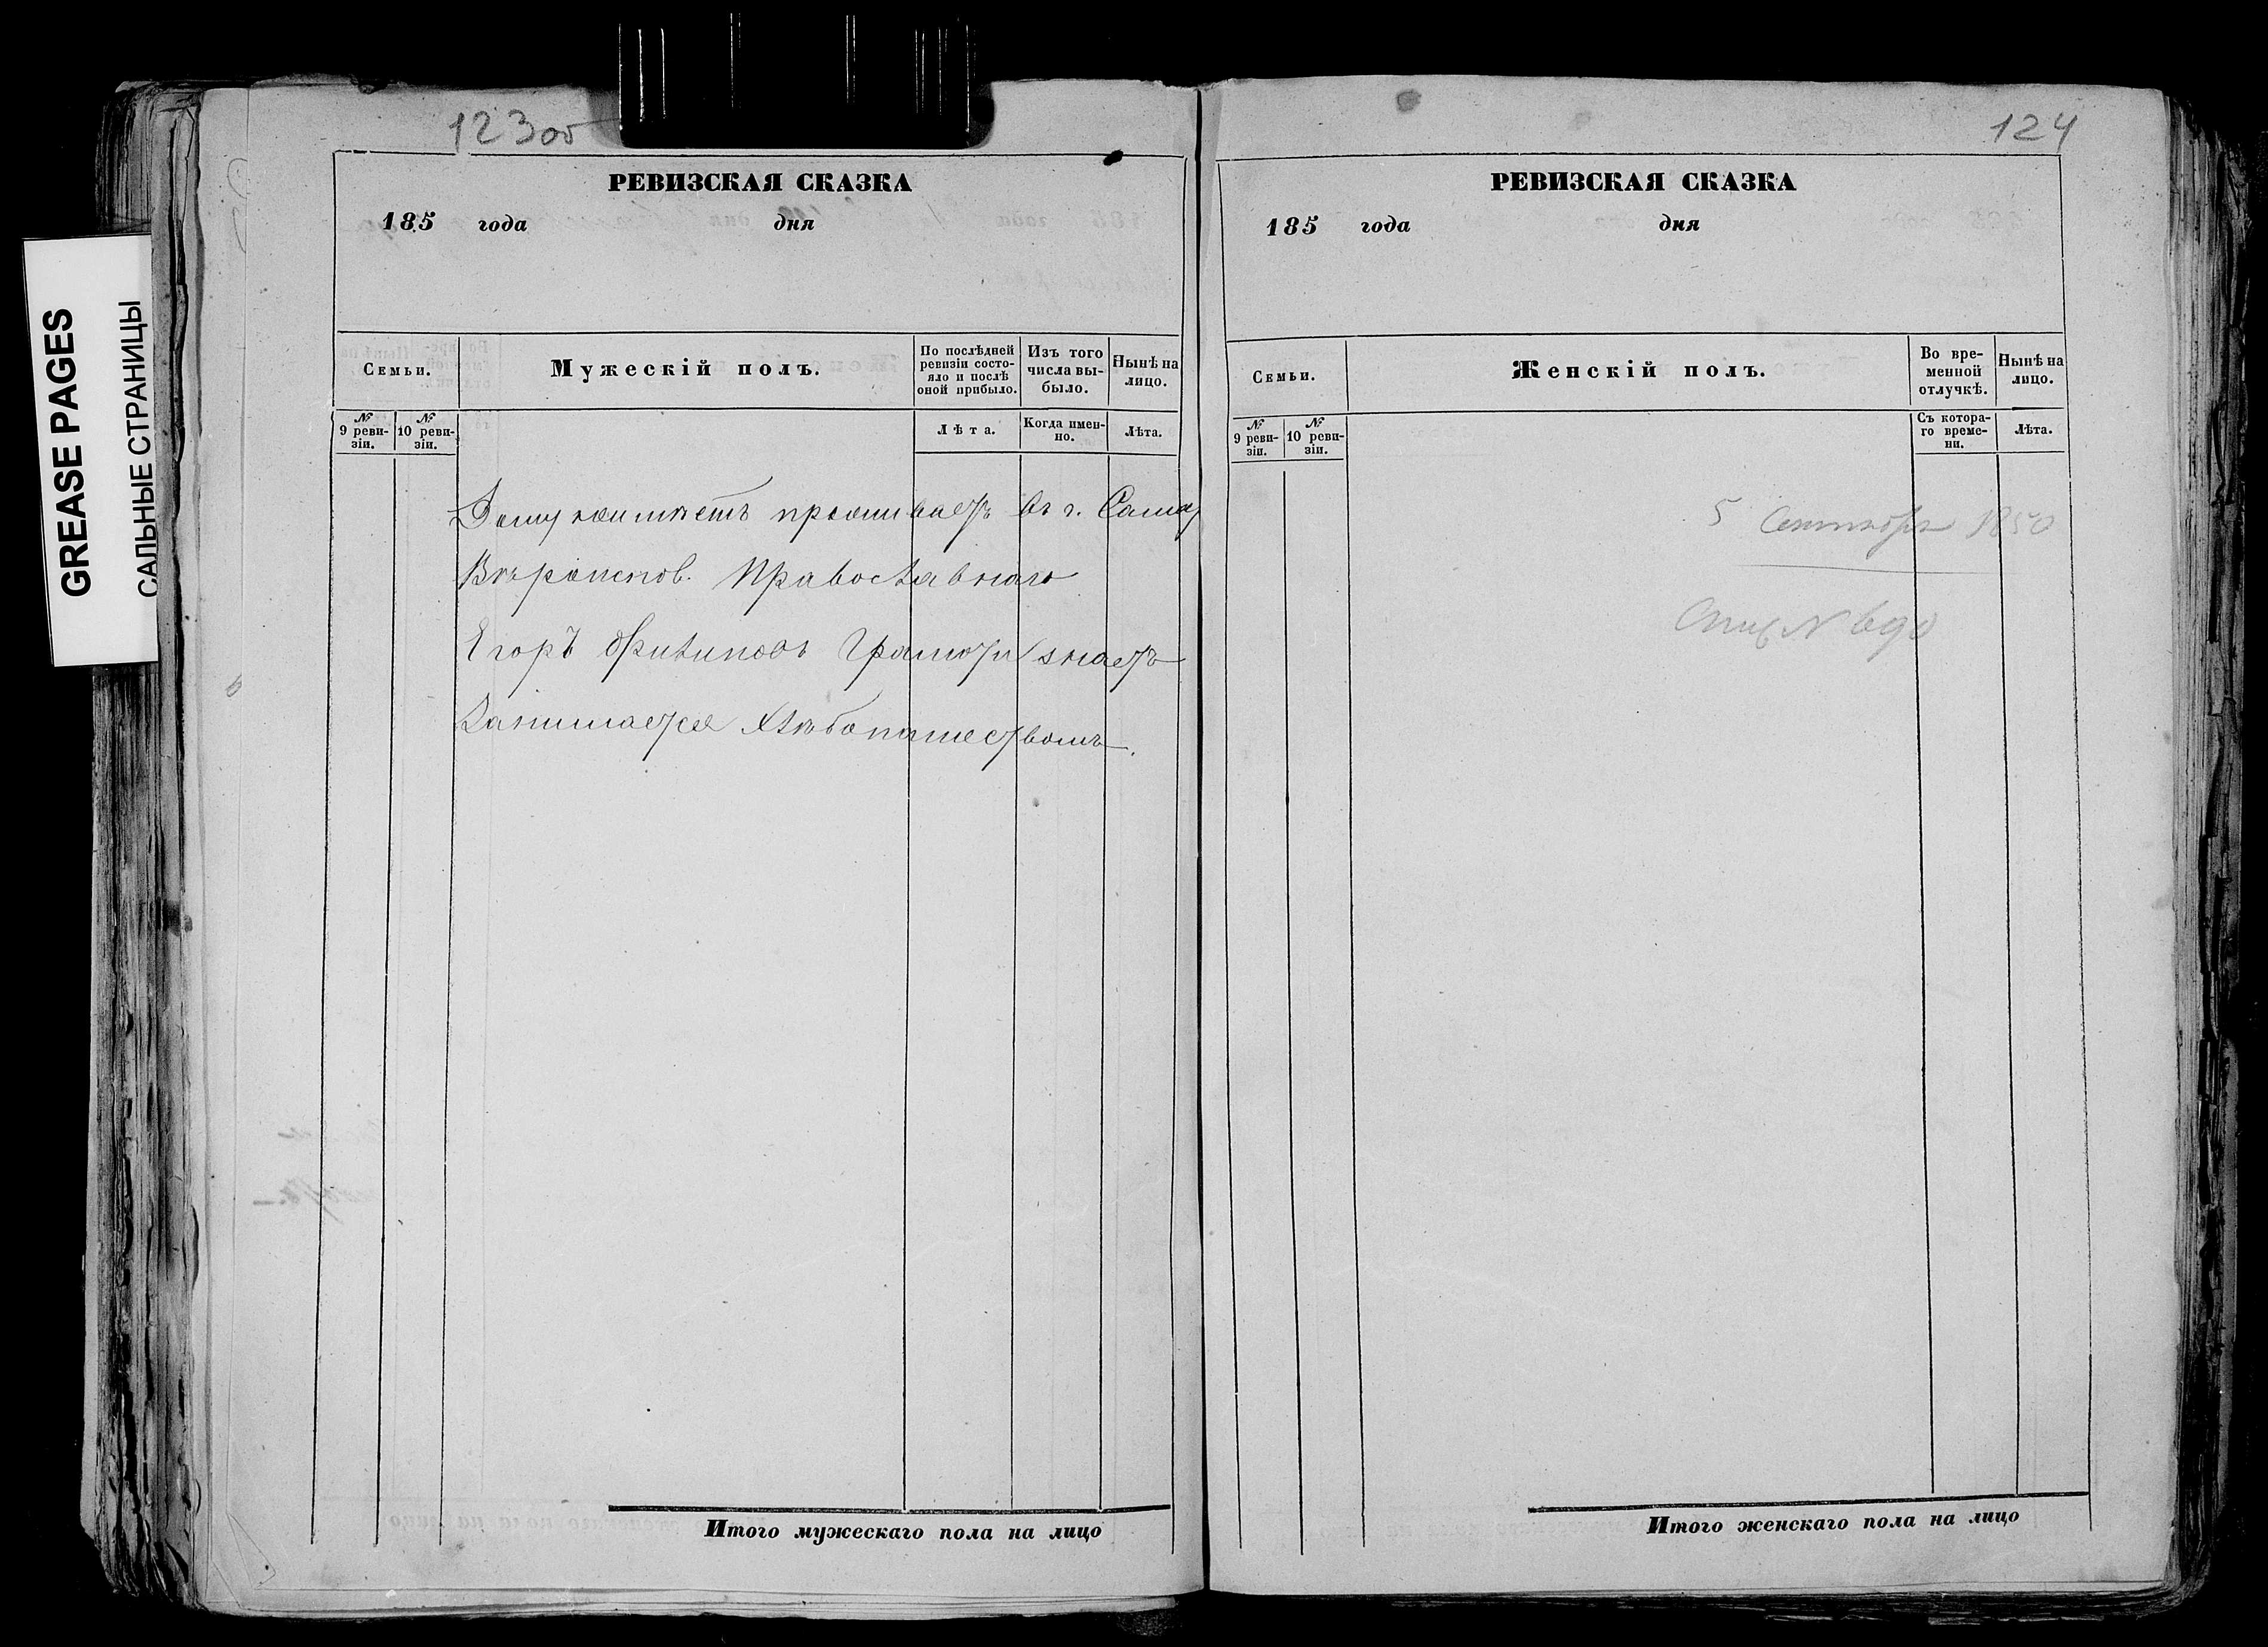 GREASE PAGES
САЛЬНЫЕ СТРАНИЦЫ
123об
РЕВИЗСКАЯ СКАЗКА
185 года дня
Семьи.
Мужескій полъ.
По послѣдней ревизіи состояло и послѣ оной прибыло.
Изъ того числа выбыло.
Нынѣ на лицо.
№ 9 ревизіи.
№ 10 ревизіи.
Лѣта.
Когда именно.
Лѣта.
проживаетъ въ г.
Православнаго
Егоръ Филиповъ Грамоту знаетъ
Занимается Хлѣбопашествомъ.
Итого мужескаго пола на лицо
124
РЕВИЗСКАЯ СКАЗКА
185 года дня
Семьи.
Женскій полъ.
Во временной отлучкѣ.
Нынѣ на лицо.
№ 9 ревизіи.
№ 10 ревизіи.
Съ котораго времени.
Лѣта.
5 Сентября 1850
N 690
Итого женскаго пола на лицо